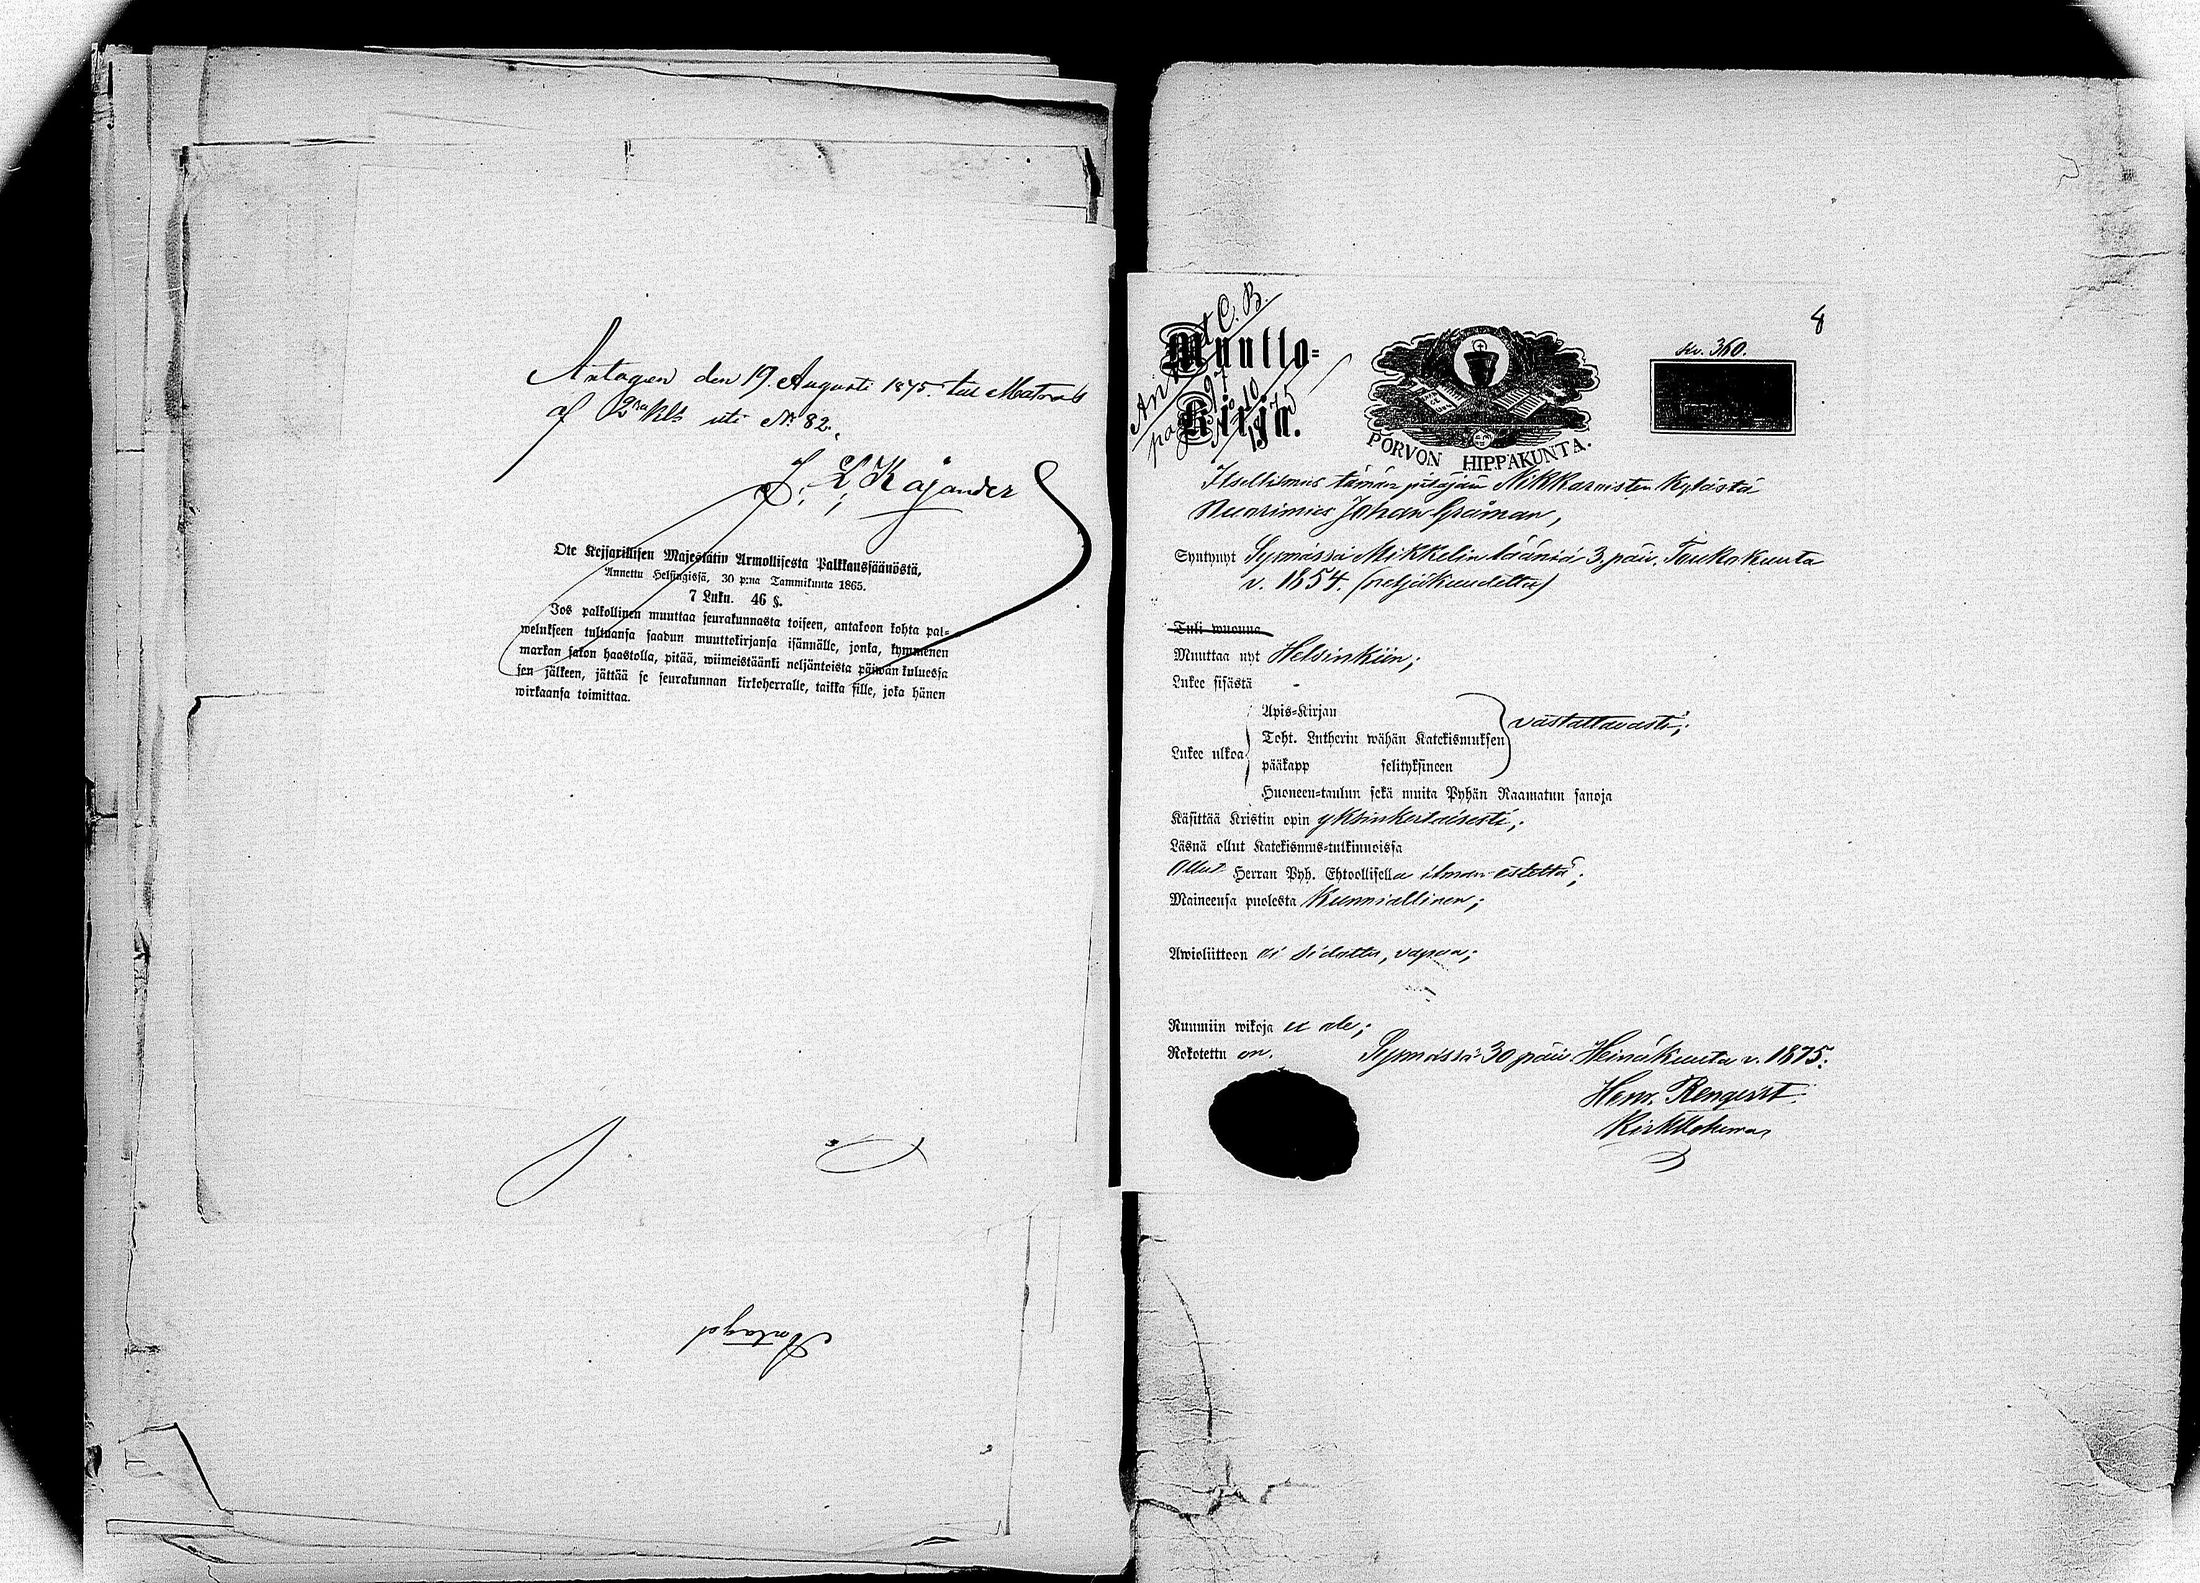 Antagen den 19 Augusti 1875 till Matros
af 2dra Kls uti No 82.
J. E. Kajander
Ote Kejsarillisen Majestätin Armollisesta Palkkaussäänöstä,
Annettu Helsingissä, 30 p:nä Tammikuuta 1865.
7 Luku. 46 §.
Jos palkollinen muuttaa seurakunnasta toiseen, antakoon kohta pal=
welukseen tultuansa saadun muuttokirjansa isännälle, jonka, kymmenen
markan sakon haastolla, pitää, wiimeistäänki neljäntoista päiwän kuluessa
sen jälkeen, jättää se seurakunnan kirkoherralle, taikka sille, joka hänen
wirkaansa toimittaa.
Antaget
8
C. B.
Muutto=
Kirja.
PORVON HIPPAKUNTA.
Sv. 360.
Itsellismies tämän pitäjän Nikkaroisten kylästä
Nuorimies Johan Gråman,
Syntynyt Sysmässä Mikkelin lääniä 3. päiv. Toukokuuta
v. 1854. (neljäkuudetta)
Tuli wuonna
Muuttaa nyt Helsinkiin;
Lukee sisästä -
Apis=Kirjan
Toht. Lutherin wähän Katekismuksen
Lukee ulkoa
pääkapp selityksineen
vastattavasti;
Huoneen=taulun sekä muita Pyhän Raamatun sanoja
Käsittää Kristin opin yksinkertaisesti;
Läsnä ollut Katekismus=tutkinnoissa
Ollut Herran Pyh. Ehtoollisella ilman estettä;
Maineensa puolesta Kunniallinen;
Awioliittoon ei sidottu, vapaa;
Ruumiin wikoja ei ole;
Rokotettu on.
Sysmässä 30 päiv. Heinäkuuta v. 1875.
Henr. Renqvist
Kirkkoherra